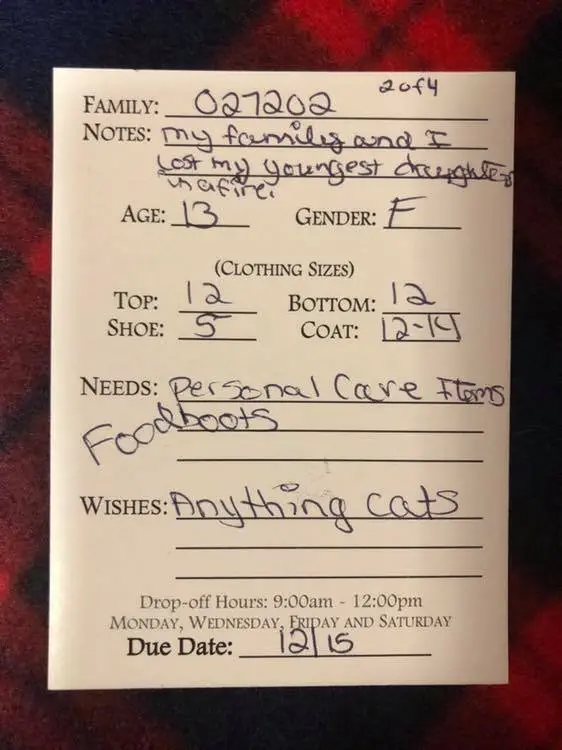 2 of 4
FAMILY: 027202
NOTES: my family and I
Lost my youngest daughter
in a fire.
AGE: 13 GENDER: F
(CLOTHING SIZES)
TOP: 12 BOTTOM: 12
SHOE: 5 COAT: 12-14
NEEDS: Personal Care Items
Food boots
WISHES: Anything cats
Drop-off Hours: 9:00am - 12:00pm
MONDAY, WEDNESDAY, FRIDAY AND SATURDAY
Due Date: 12/15